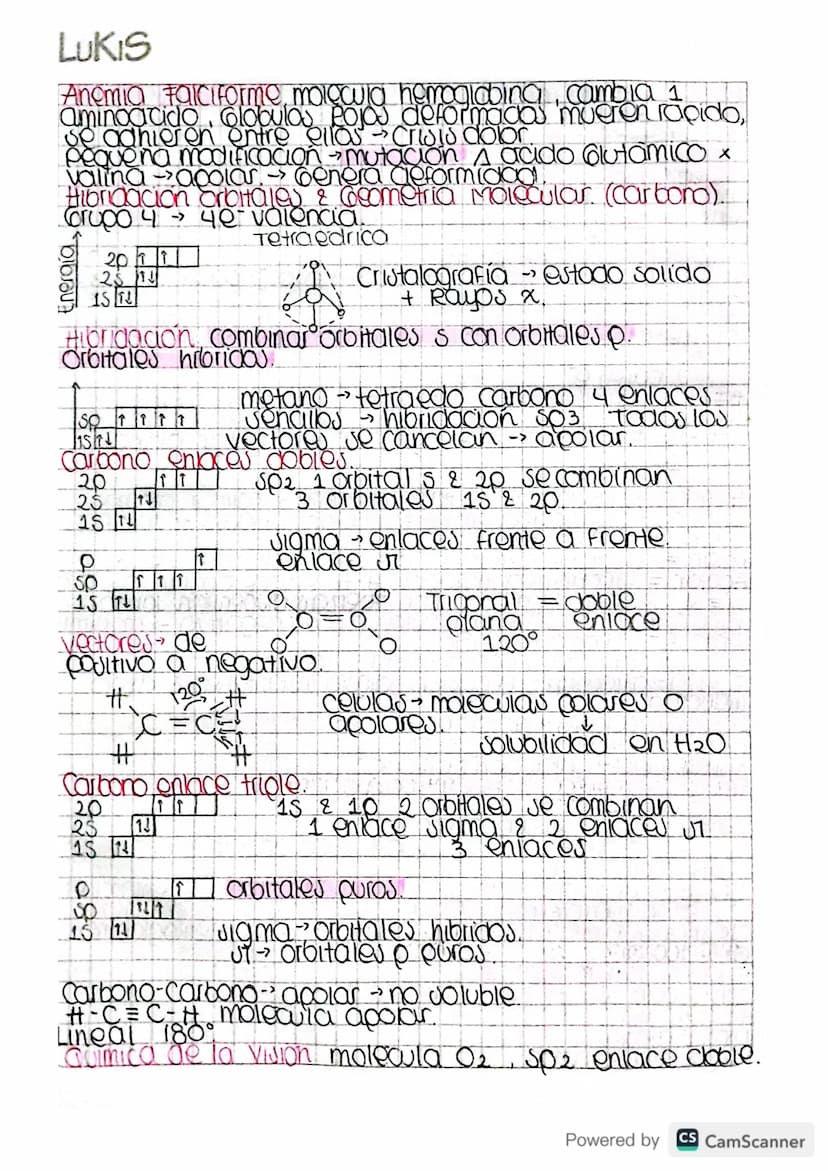 LUKIS
Anemia Falciforme, molecula hemoglobina, cambia 1
aminoacido, Globulos Rojos deformados mueren rapido,
se adhieren entre ellos → Crisis dolor
pequeña modificacion → mutación 1 acido Glutámico x
valina → apolar → Genera deformidad.
Hibridación orbitales & Geometria Molecular. (carbono).
Grupo 4 → 4e- valencia.
Tetraédrico
Energia
2p ↑ ↑
2s ↑↓
1s ↑↓
Cristalografía → estado solido
+ Rayos x.
Hibridación, combinar orbitales s con orbitales p.
orbitales hibridos.
metano → tetraedo carbono 4 enlaces
sp ↑ ↑ ↑ ↑
sencillos → hibridación sp3 Todos los
1s ↑↓
vectores se cancelan → apolar.
Carbono enlaces dobles.
2p ↑ ↑
sp2 1 orbital s & 2p se combinan
2s ↑↓
3 orbitales 1s & 2p.
1s ↑↓
sigma → enlaces frente a frente.
p ↑
enlace π
sp ↑ ↑ ↑
1s ↑↓
Trigonal = doble
plana enlace
120°
vectores → de
positivo a negativo.
H 120° H
C = C
H H
celulas → moleculas polares o
apolares.
↓
solubilidad en H2O
Carbono enlace triple.
2p ↑ ↑
1s & 1p 2 orbitales se combinan
2s ↑↓
1 enlace sigma & 2 enlaces π
1s ↑↓
3 enlaces
p ↑
orbitales puros.
sp ↑↓ ↑
1s ↑↓
sigma → orbitales hibridos.
π → orbitales p puros.
Carbono-carbono → apolar → no soluble
H-C≡C-H molecula apolar.
Lineal 180°
Quimica de la vision molecula O2, sp2 enlace doble.
Powered by CS CamScanner